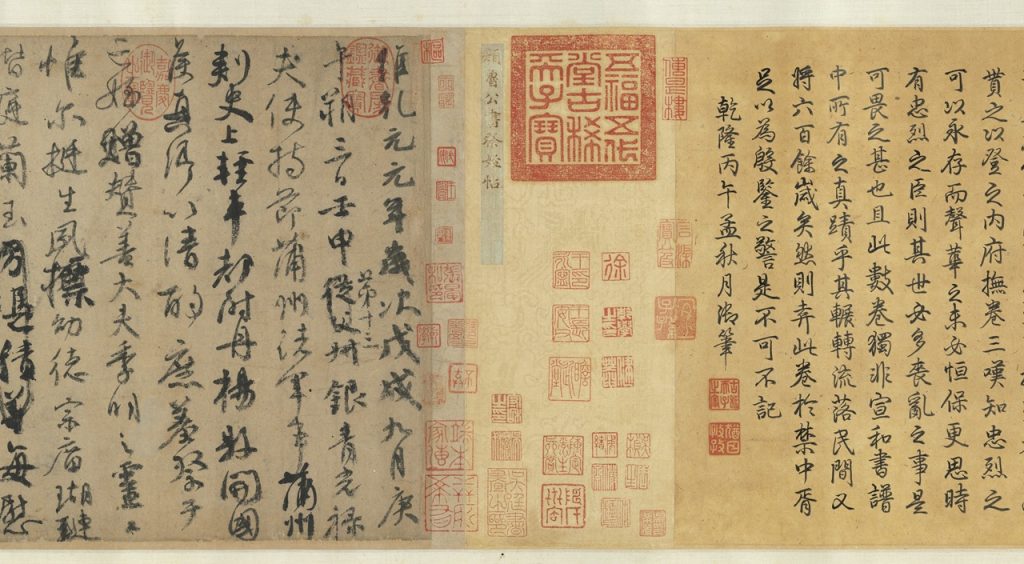 貰之以登之內府撫卷三嘆知忠烈之
可以永存而聲華之未必恒保更思時
有忠烈之臣則其世必多喪亂之事是
可畏之甚也且此數卷獨非宣和書譜
中所有之真蹟乎其輾轉流落民間又
將六百餘歲矣然則弆此卷於禁中胥
足以為殷鑒之警是不可不記
乾隆丙午孟秋月御筆
五福五代
堂古稀
天子寶
顏魯公書祭姪帖
維乾元元年歲次戊戌九月庚
午朔三日壬申從父叔銀青光祿
第十三
夫使持節蒲州諸軍事蒲州
刺史上輕車都尉丹楊縣開國
侯真卿以清酌庶羞祭于
亡姪贈贊善大夫季明之靈曰
惟爾挺生夙標幼德宗廟瑚璉
階庭蘭玉積善每慰